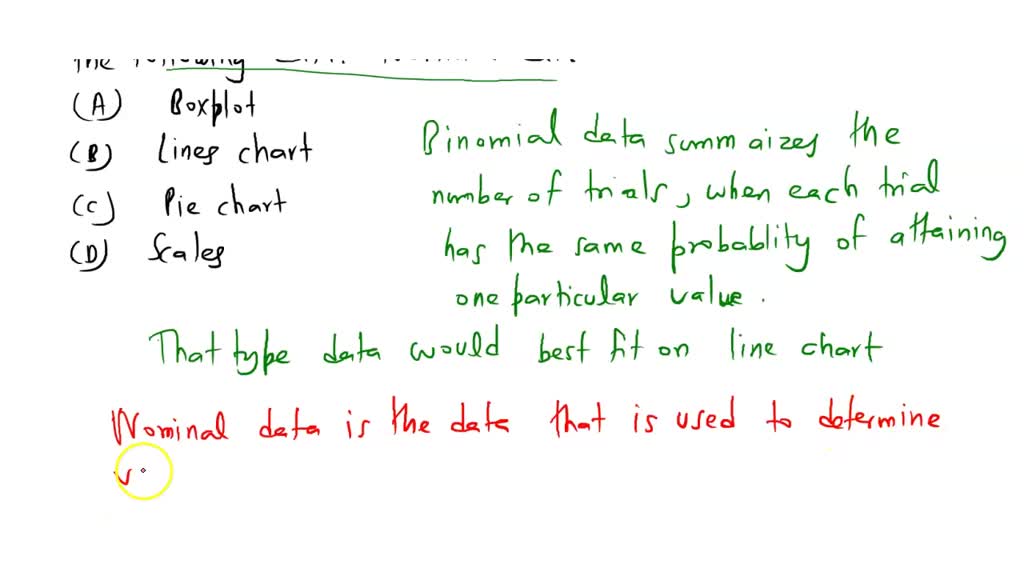 the following
(A) Boxplot
(B) Lines chart
(C) Pie chart
(D) Scales
Binomial data summaizes the
number of trials, when each trial
has the same probablity of attaining
one particular value.
That type data would best fit on line chart
Nominal data is the data that is used to determine
v